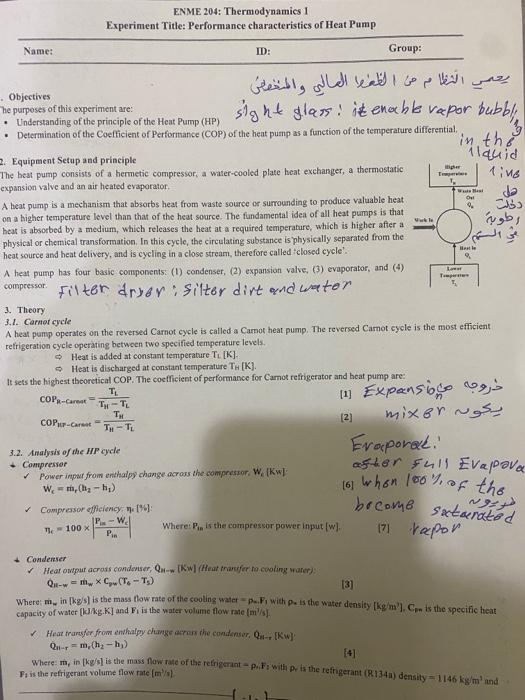 ENME 204: Thermodynamics 1
Experiment Title: Performance characteristics of Heat Pump
Name: ID: Group:
يحمي النظام من الضغط العالي والمنخفض
. Objectives
The purposes of this experiment are:
sight glass: it enable vapor bubbl
• Understanding of the principle of the Heat Pump (HP)
• Determination of the Coefficient of Performance (COP) of the heat pump as a function of the temperature differential.
in the
liquid
line
2. Equipment Setup and principle
The heat pump consists of a hermetic compressor, a water-cooled plate heat exchanger, a thermostatic
expansion valve and an air heated evaporator.
A heat pump is a mechanism that absorbs heat from waste source or surrounding to produce valuable heat
on a higher temperature level than that of the heat source. The fundamental idea of all heat pumps is that
heat is absorbed by a medium, which releases the heat at a required temperature, which is higher after a
physical or chemical transformation. In this cycle, the circulating substance is physically separated from the
heat source and heat delivery, and is cycling in a close stream, therefore called 'closed cycle'.
Higher
Temperature
Waste Heat
Out
Work In
Heat In
Lower
Temperature
هل
دخلت
رطوبة
A heat pump has four basic components: (1) condenser, (2) expansion valve, (3) evaporator, and (4)
compressor.
Filter dryer: filter dirt and water
3. Theory
3.1. Carnot cycle
A heat pump operates on the reversed Carnot cycle is called a Carnot heat pump. The reversed Carnot cycle is the most efficient
refrigeration cycle operating between two specified temperature levels.
⇒ Heat is added at constant temperature TL [K].
⇒ Heat is discharged at constant temperature TH [K].
It sets the highest theoretical COP. The coefficient of performance for Carnot refrigerator and heat pump are:
COPR-Carnot = TL / (TH − TL) [1]
Expansion خروجه
COPHP-Carnot = TH / (TH − TL) [2]
يكون mixer
3.2. Analysis of the HP cycle
Evaporat:
after full Evapora
when 100% of the
become saturated
vapor
Compressor
✓ Power input from enthalpy change across the compressor, Wc [Kw]:
Wc = ṁr(h2 − h1) [6]
✓ Compressor efficiency: ηc [%]:
ηc = 100 × |(Pin − Wc) / Pin| Where: Pin is the compressor power input [w]. [7]
Condenser
✓ Heat output across condenser, QH-w [Kw] (Heat transfer to cooling water):
QH-w = ṁw × Cpw(T6 − T5) [3]
Where: ṁw in [kg/s] is the mass flow rate of the cooling water = ρw.F1 with ρw is the water density [kg/m³], Cpw is the specific heat
capacity of water [kJ/kg.K] and F1 is the water volume flow rate [m³/s].
✓ Heat transfer from enthalpy change across the condenser, QH-r [Kw]:
QH-r = ṁr(h2 − h3) [4]
Where: ṁr in [kg/s] is the mass flow rate of the refrigerant = ρr.F2 with ρr is the refrigerant (R134a) density = 1146 kg/m³ and
F2 is the refrigerant volume flow rate [m³/s].